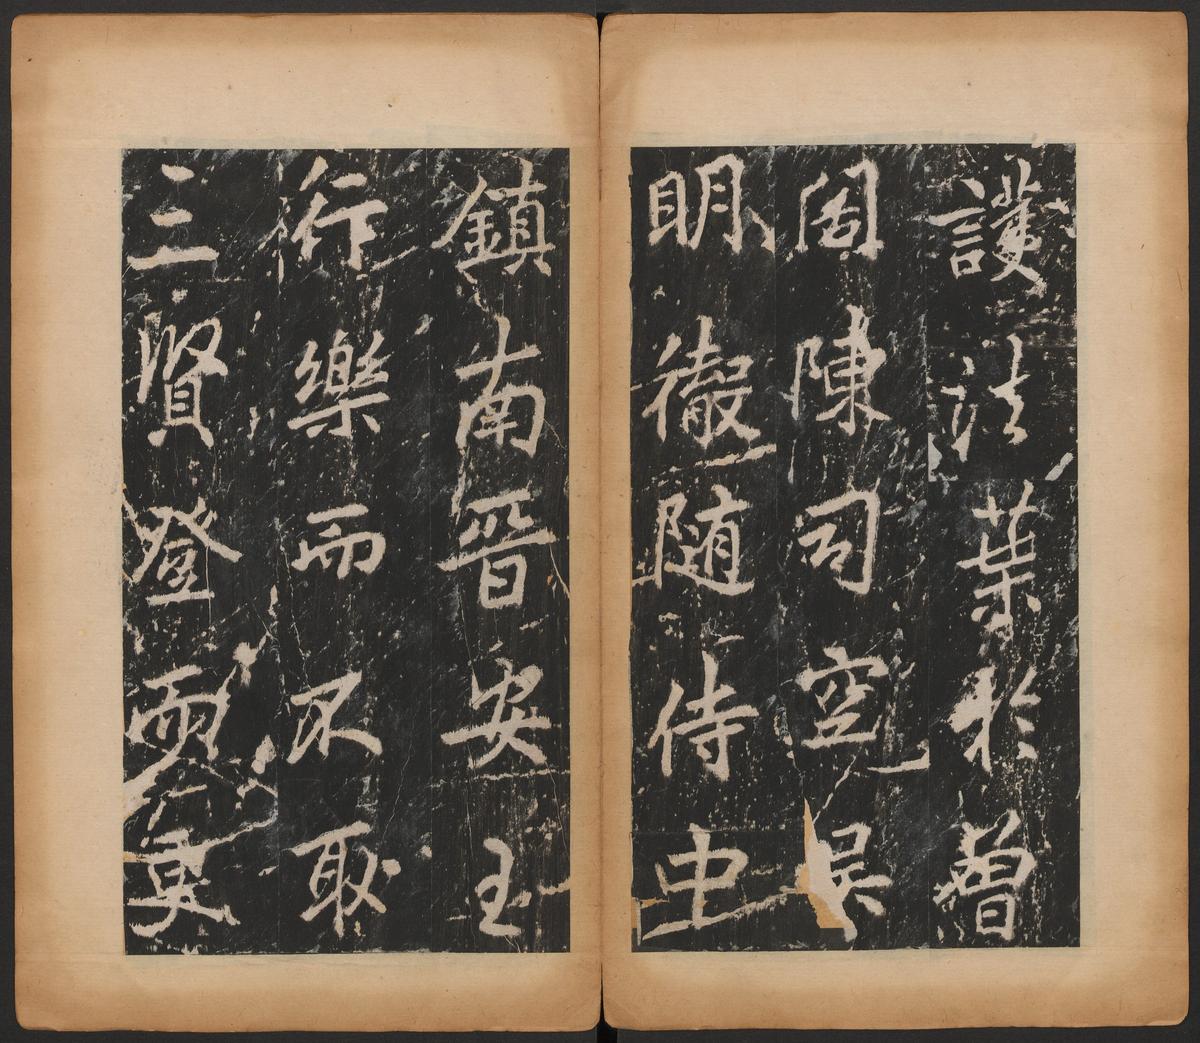 護法葉於曾
周陳司空吳
明徹隨侍中
鎮南晉安王
行樂而不取
三賢登而更